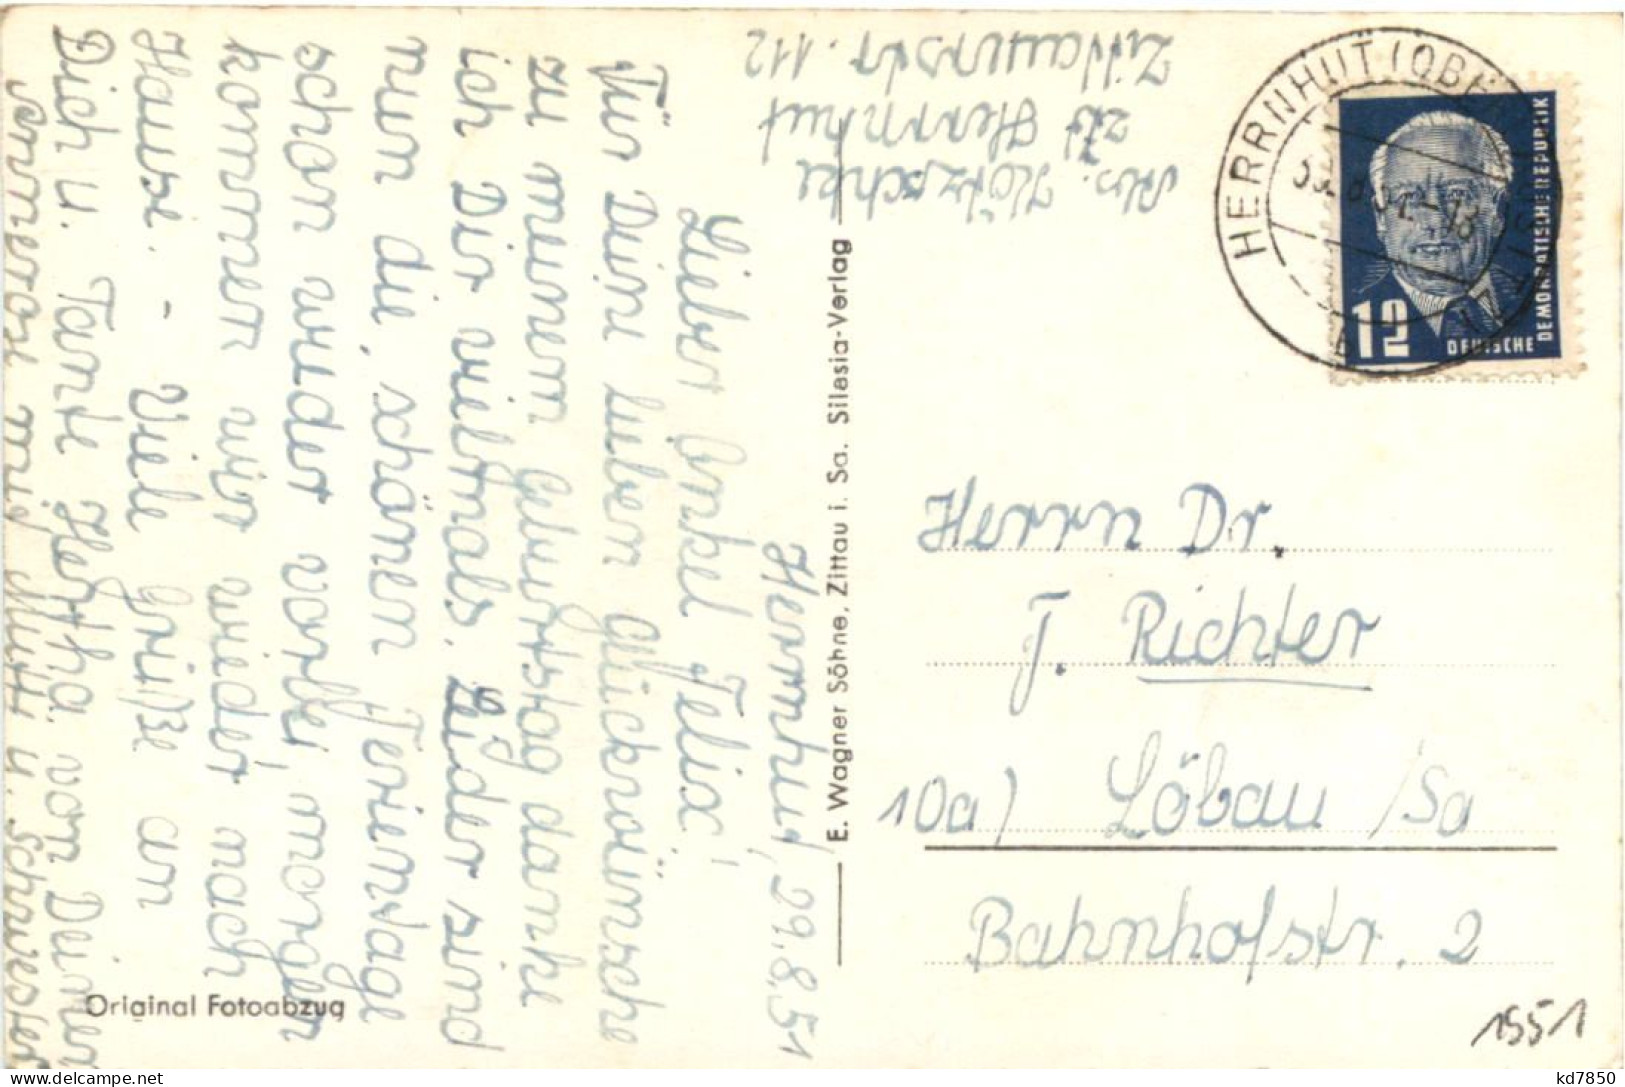 Abs. Kötzschke
z.Zt. Herrnhut
Zittauerstr. 112
Herrnhut, 29.8.51
Lieber Onkel Felix!
Für Deine lieben Glückwünsche
zu meinem Geburtstag danke
ich Dir vielmals. Leider sind
nun die schönen Ferientage
schon wieder vorbei, morgen
kommen wir wieder nach
Hause. - Viele Grüße an
Dich u. Tante Hertha von Deiner
Annerose mit Mutti u. Schwester
Original Fotoabzug
E. Wagner Söhne, Zittau i. Sa. Silesia-Verlag
HERRNHUT (OBERLAUSITZ)
12
DEUTSCHE
DEMOKRATISCHE REPUBLIK
Herrn Dr.
F. Richter
10a) Löbau /Sa
Bahnhofstr. 2
1551
kd7850